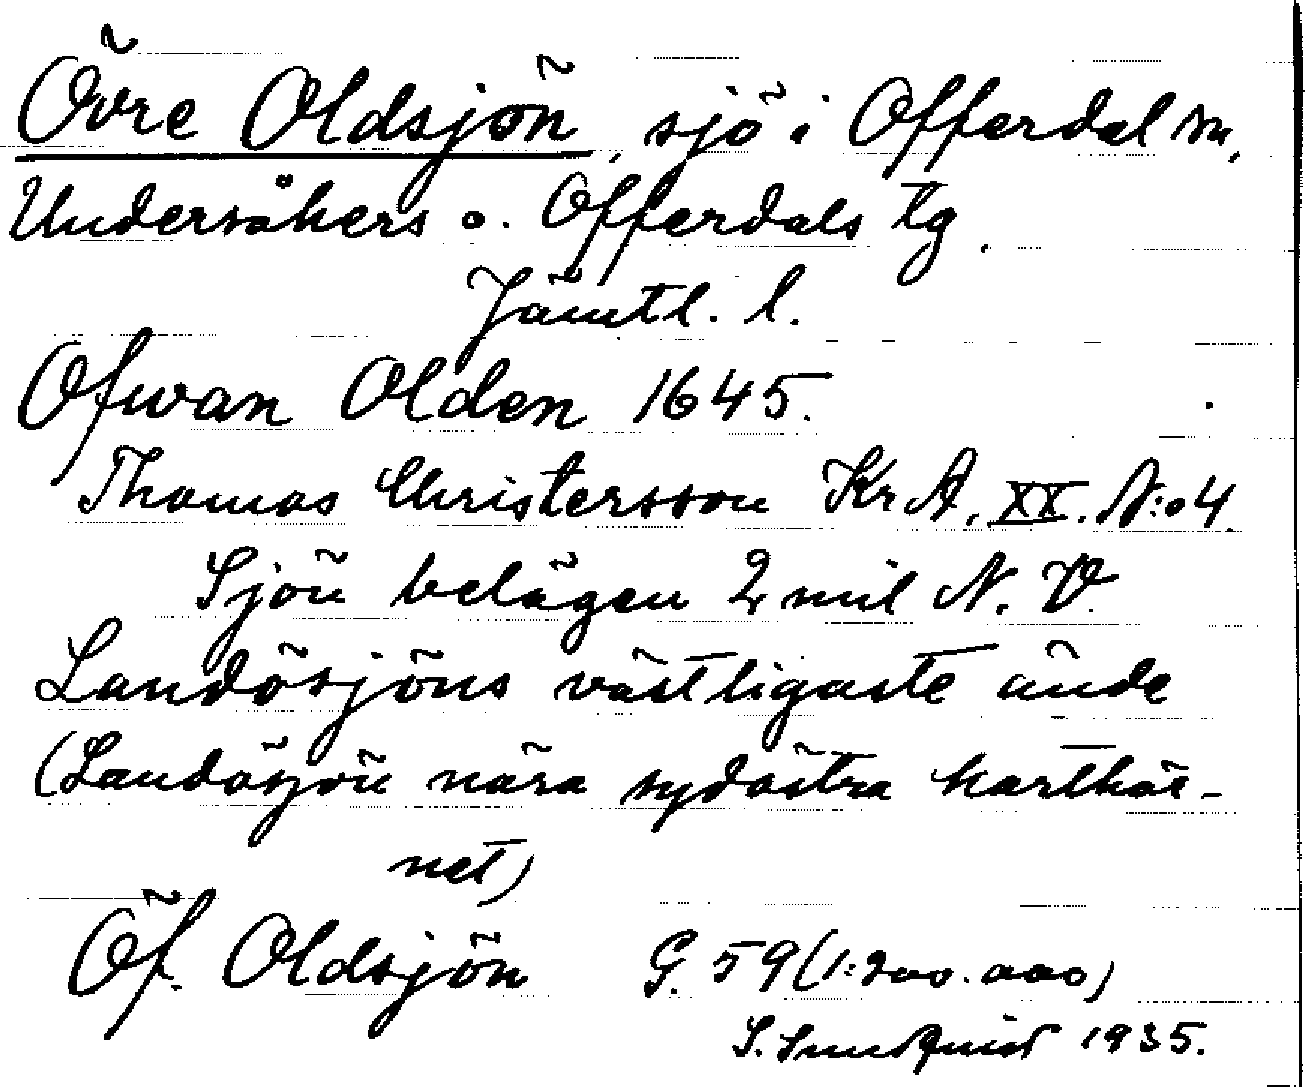 Övre Oldsjön, sjö i Offerdal sn,
Undersåkers o. Offerdals tg.
Jämtl. l.
Ofwan Olden 1645.
Thomas Christersson KrA, XX. N:o 4.
Sjön belägen 2 mil N. V.
Landösjöns västligaste ände
(Landösjön nära sydöstra karthör-
net)
Öf. Oldsjön G. 59 (1:200.000)
S. Sundquist 1935.